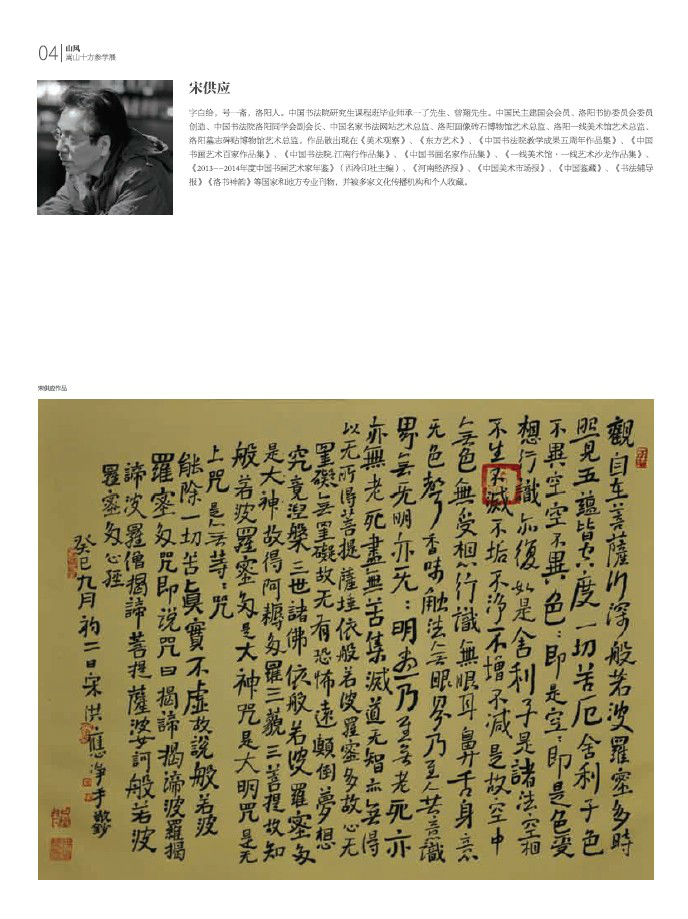 04
山风
嵩山十方参学展
宋供应
字白绘，号一斋，洛阳人。中国书法院研究生课程班毕业师承一了先生、曾翔先生。中国民主建国会会员、洛阳书协委员会委员
创造、中国书法院洛阳同学会副会长、中国名家书法网站艺术总监、洛阳画像砖石博物馆艺术总监、洛阳一线美术馆艺术总监、
洛阳墓志碑贴博物馆艺术总监。作品散出现在《美术观察》、《东方艺术》、《中国书法院教学成果五周年作品集》、《中国
书画艺术百家作品集》、《中国书法院.江南行作品集》、《中国书画名家作品集》、《一线美术馆·一线艺术沙龙作品集》、
《2013---2014年度中国书画艺术家年鉴》（西泠印社主编）、《河南经济报》、《中国美术市场报》、《中国鉴藏》、《书法辅导
报》《洛书神韵》等国家和地方专业刊物，并被多家文化传播机构和个人收藏。
宋供应作品
觀自在菩薩行深般若波羅蜜多時
照見五蘊皆空度一切苦厄舍利子色
不異空空不異色:即是空:即是色受
想行識亦復如是舍利子是諸法空相
不生不滅不垢不净不增不減是故空中
無色無受想行識無眼耳鼻舌身意
无色聲香味触法無眼界乃至无意識
界無无明亦无:明盡乃至無老死亦
亦無老死盡無苦集滅道无智亦無得
以无所得菩提薩埵依般若波羅蜜多故心无
罣礙無罣礙故无有恐怖遠顛倒夢想
究竟涅槃三世諸佛依般若波羅蜜多
是大神故得阿耨多羅三藐三菩提故知
般若波羅蜜多是大神咒是大明咒是无
上咒是無等:咒
能除一切苦真實不虛故說般若波
羅蜜多咒即说咒曰揭諦揭諦波羅揭
諦波羅僧揭諦菩提薩婆訶般若波
羅蜜多心經
癸巳九月初二日宋洪應净手敬鈔